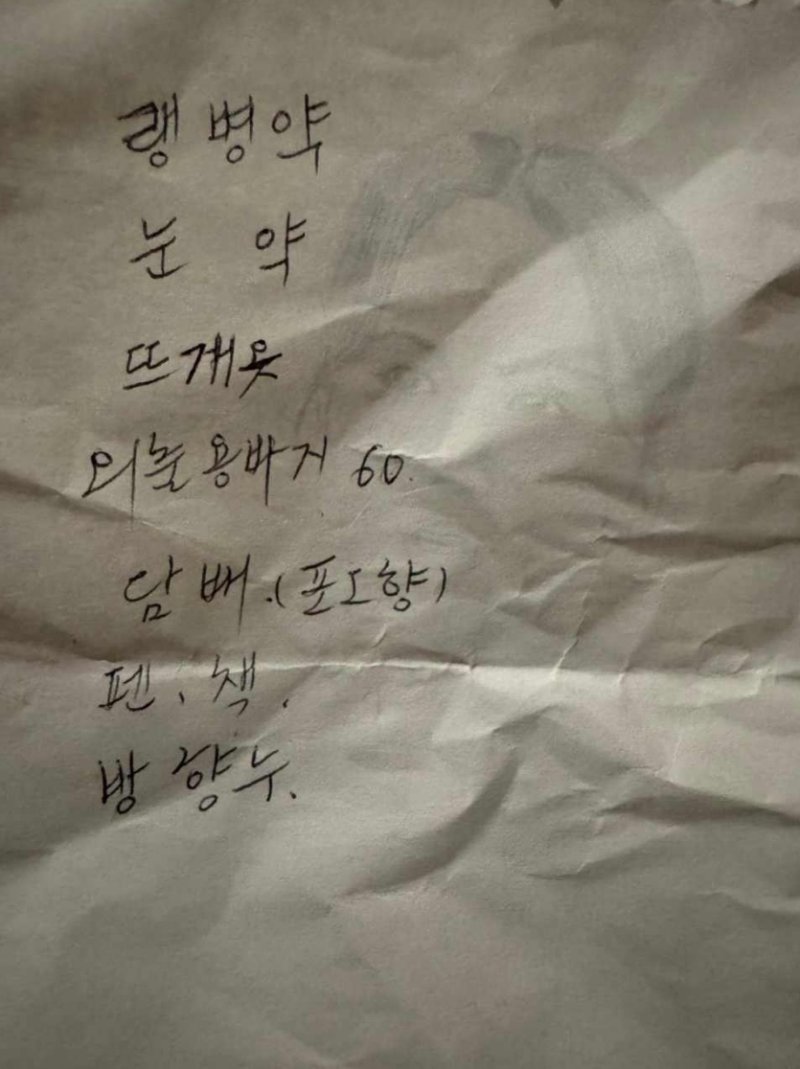 랭병약
눈 약
뜨개옷
외출용바지 60.
담배.(포도향)
펜, 책.
방향수.